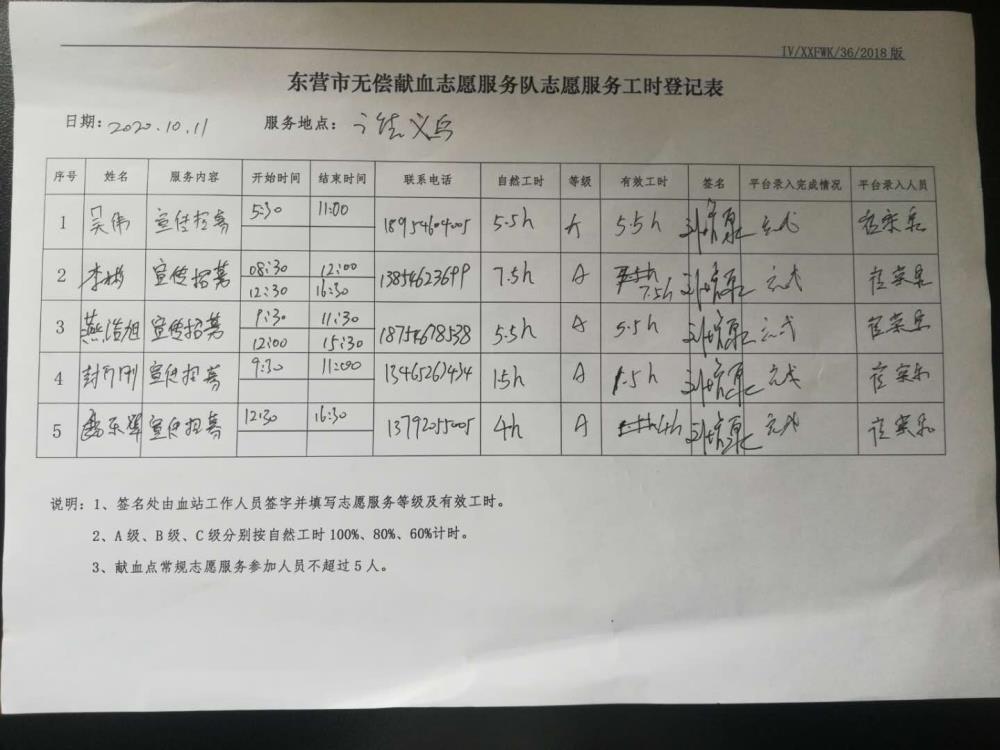 IV/XXFWK/36/2018版
东营市无偿献血志愿服务队志愿服务工时登记表
日期：2020.10.11 服务地点：
序号 姓名 服务内容 开始时间 结束时间 联系电话 自然工时 等级 有效工时 签名 平台录入完成情况 平台录入人员
1 吴伟 宣传招募 5:30 11:00 18954604005 5.5h A 5.5h 完成
2 李彬 宣传招募 08:30 12:00 13854623699 7.5h A 7.5h 完成
12:30 16:30
3 燕浩旭 宣传招募 9:30 11:30 18754678538 5.5h A 5.5h 完成
12:00 15:30
4 宣传招募 9:30 11:00 13465267434 1.5h A 1.5h 完成
5 宣传招募 12:30 16:30 13792055005 4h A 4h 完成
说明：1、签名处由血站工作人员签字并填写志愿服务等级及有效工时。
2、A级、B级、C级分别按自然工时100%、80%、60%计时。
3、献血点常规志愿服务参加人员不超过5人。